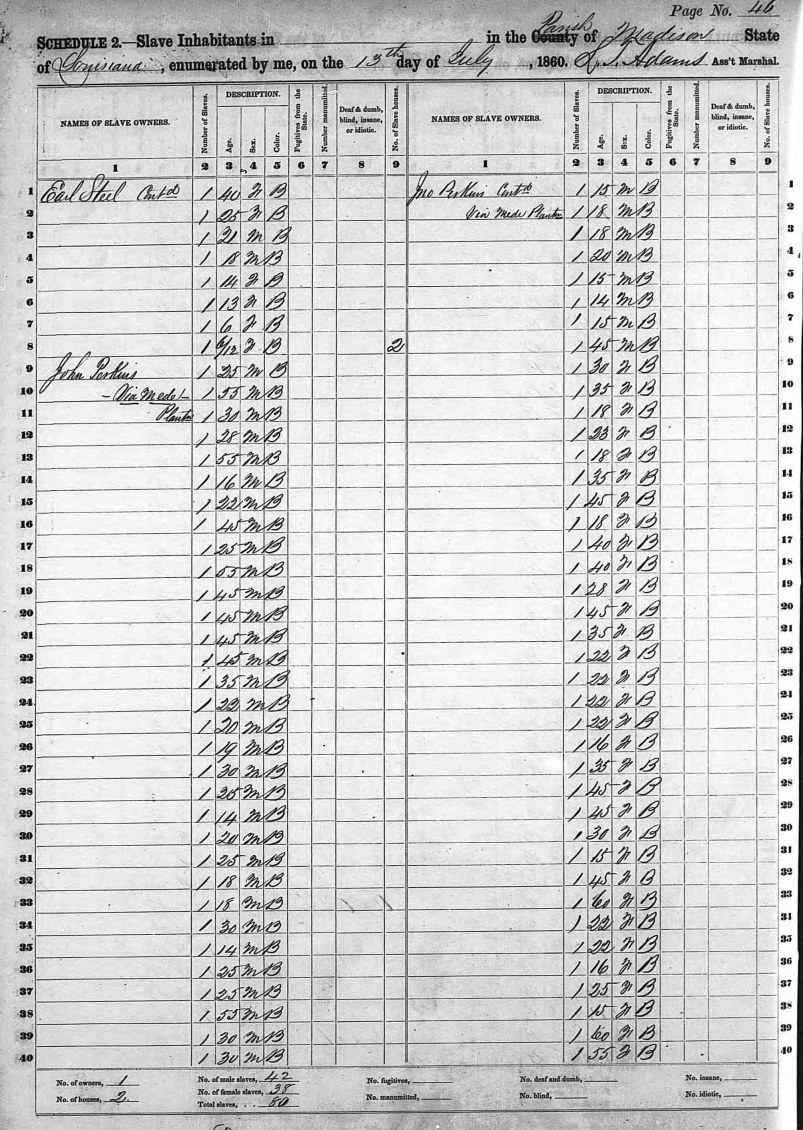 Page No. 46
SCHEDULE 2.—Slave Inhabitants in in the County Parish of Madison State
of Louisiana, enumerated by me, on the 13th day of July, 1860. Adams Ass't Marshal.
NAMES OF SLAVE OWNERS. Number of Slaves. DESCRIPTION. Age. Sex. Color. Fugitives from the State. Number manumitted. Deaf & dumb, blind, insane, or idiotic. No. of Slave houses. NAMES OF SLAVE OWNERS. Number of Slaves. DESCRIPTION. Age. Sex. Color. Fugitives from the State. Number manumitted. Deaf & dumb, blind, insane, or idiotic. No. of Slave houses.
1 2 3 4 5 6 7 8 9 1 2 3 4 5 6 7 8 9
1 Earl Steel Contd 1 40 F B Jno Perkins Contd 1 15 M B 1
2 1 25 F B Via Mede Plantn 1 18 M B 2
3 1 21 M B 1 18 M B 3
4 1 18 M B 1 20 M B 4
5 1 14 F B 1 15 M B 5
6 1 13 F B 1 14 M B 6
7 1 6 F B 1 15 M B 7
8 1 6/12 F B 2 1 45 M B 8
9 John Perkins 1 25 M B 1 30 F B 9
10 - Via Mede - 1 55 M B 1 35 F B 10
11 Plantn 1 30 M B 1 18 F B 11
12 1 28 M B 1 23 F B 12
13 1 55 M B 1 18 F B 13
14 1 16 M B 1 35 F B 14
15 1 22 M B 1 45 F B 15
16 1 45 M B 1 18 F B 16
17 1 25 M B 1 40 F B 17
18 1 55 M B 1 40 F B 18
19 1 45 M B 1 28 F B 19
20 1 45 M B 1 45 F B 20
21 1 45 M B 1 35 F B 21
22 1 45 M B 1 22 F B 22
23 1 35 M B 1 22 F B 23
24 1 22 M B 1 22 F B 24
25 1 20 M B 1 22 F B 25
26 1 19 M B 1 16 F B 26
27 1 30 M B 1 35 F B 27
28 1 25 M B 1 45 F B 28
29 1 14 M B 1 45 F B 29
30 1 20 M B 1 30 F B 30
31 1 25 M B 1 15 F B 31
32 1 18 M B 1 45 F B 32
33 1 18 M B 1 60 F B 33
34 1 30 M B 1 22 F B 34
35 1 14 M B 1 22 F B 35
36 1 25 M B 1 16 F B 36
37 1 25 M B 1 25 F B 37
38 1 55 M B 1 15 F B 38
39 1 30 M B 1 60 F B 39
40 1 30 M B 1 55 F B 40
No. of owners, 1 No. of male slaves, 42 No. fugitives, No. deaf and dumb, No. insane,
No. of houses, 2 No. of female slaves, 38 No. manumitted, No. blind, No. idiotic,
Total slaves, . . 80